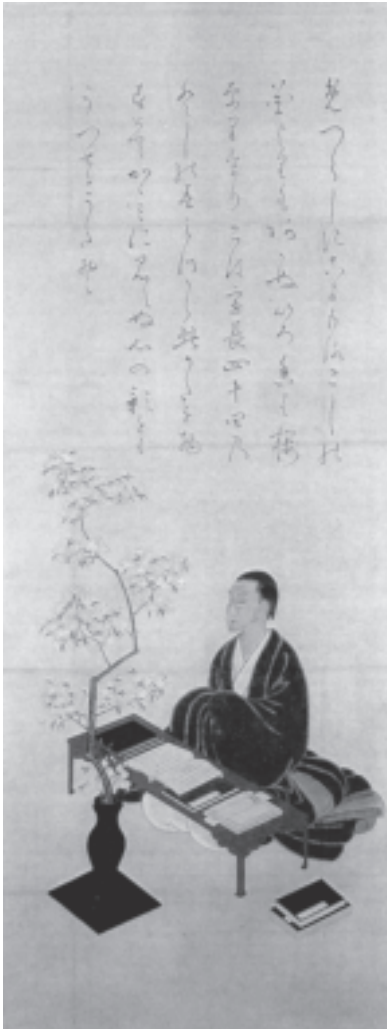 めつらしきこまもろこしの
花よりもあかぬいろ香は桜
なりけりこは宣長四十四乃
としの春みつから此かたを物
すとてかゝみに見えぬ心の影をも
うつせるうたそ